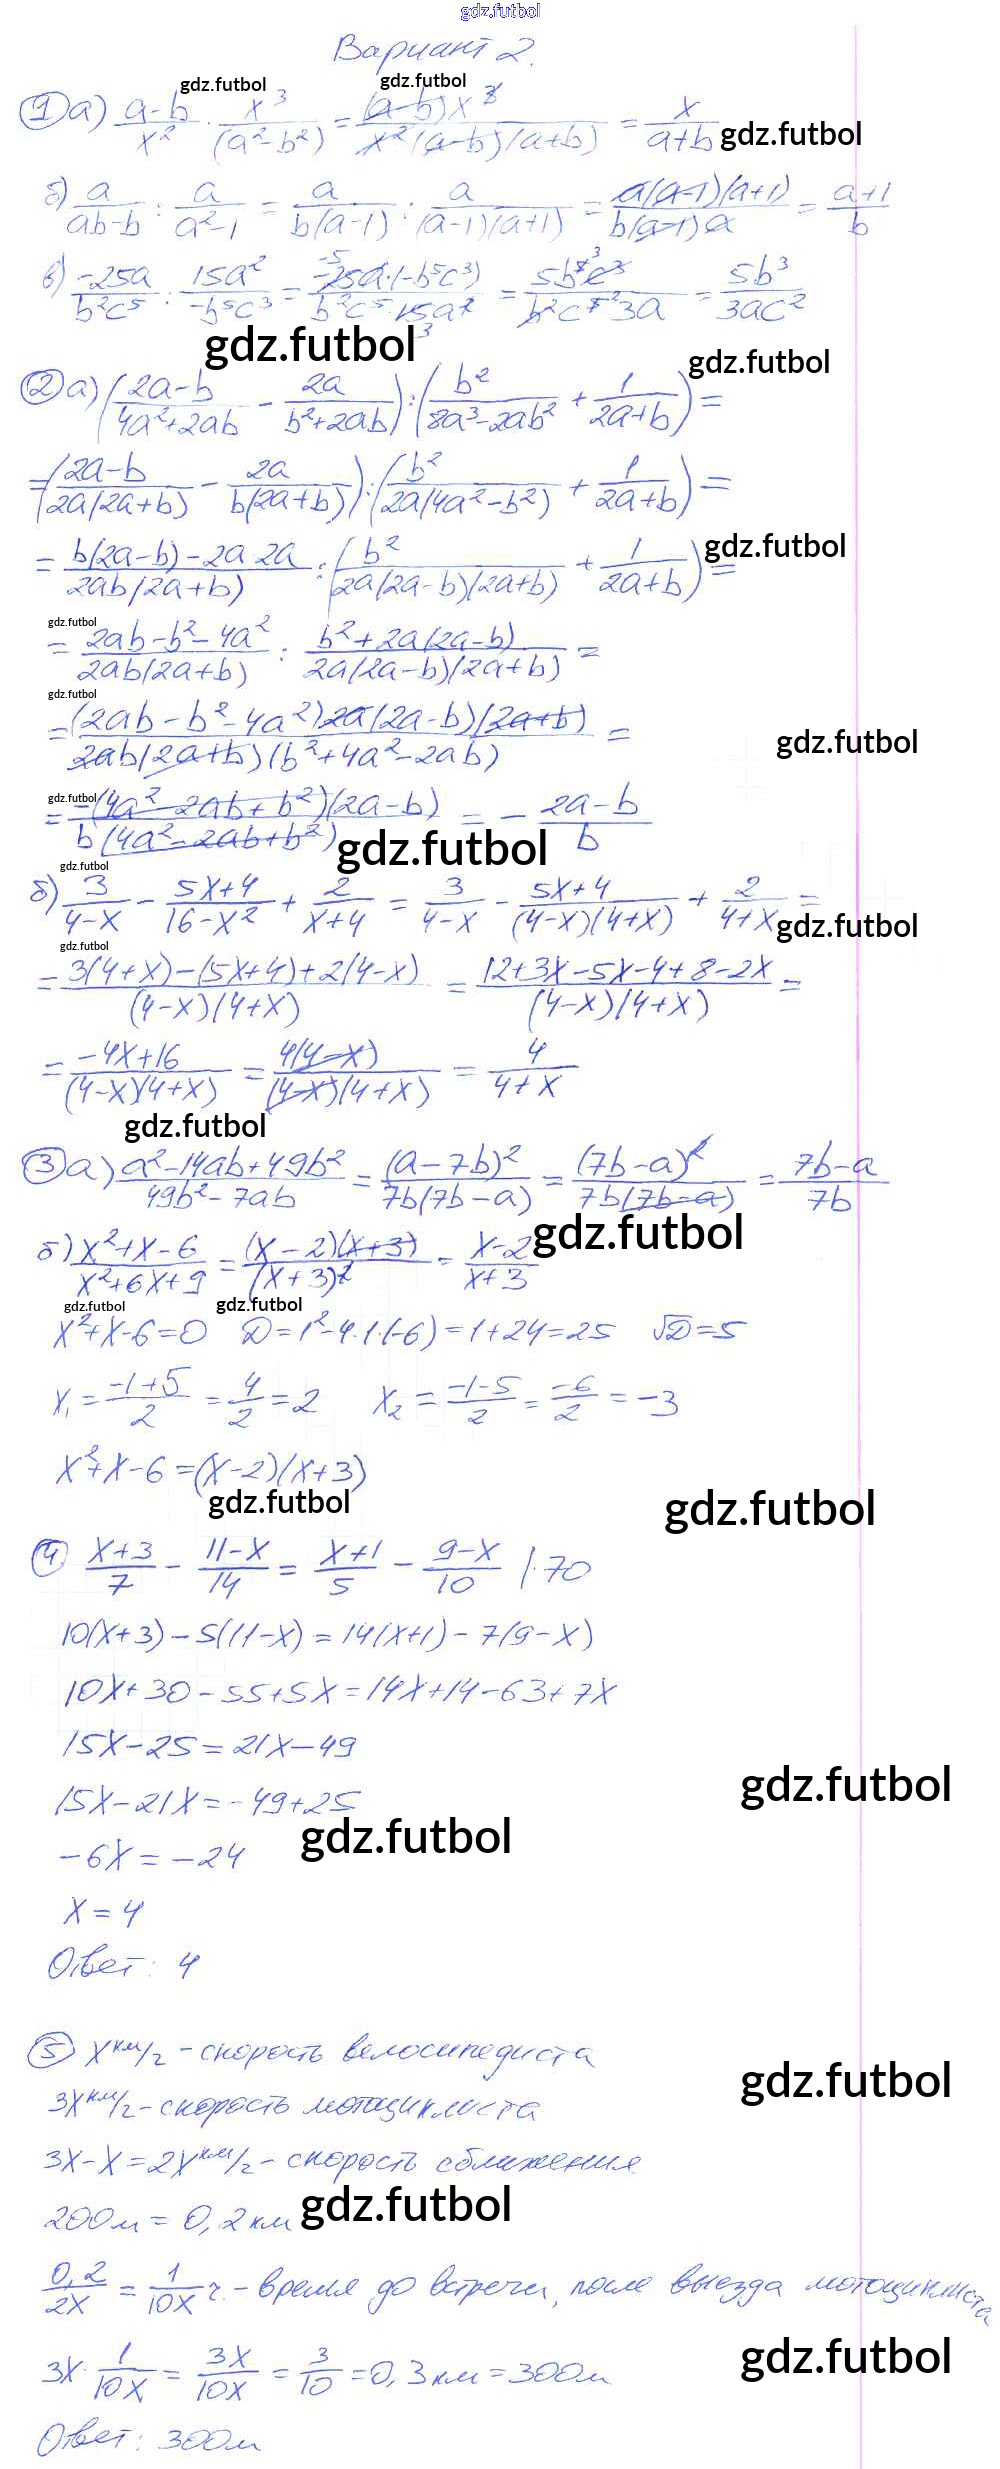 gdz.futbol
Вариант 2.
gdz.futbol gdz.futbol
① а) (a-b)/x² · x³/(a²-b²) = (a-b)x³/(x²(a-b)(a+b)) = x/(a+b)
gdz.futbol
б) a/(ab-b) : a/(a²-1) = a/(b(a-1)) : a/((a-1)(a+1)) = a(a-1)(a+1)/(b(a-1)a) = (a+1)/b
в) -25a/(b²c⁵) : 15a²/(-b⁵c³) = -25a·(-b⁵c³)/(b²c⁵·15a²) = 5b⁵c³/(b²c⁵3a) = 5b³/(3ac²)
gdz.futbol gdz.futbol
② а) ((2a-b)/(4a²+2ab) - 2a/(b²+2ab)) : (b²/(8a³-2ab²) + 1/(2a+b)) =
= ((2a-b)/(2a(2a+b)) - 2a/(b(2a+b))) : (b²/(2a(4a²-b²)) + 1/(2a+b)) =
gdz.futbol
= (b(2a-b)-2a·2a)/(2ab(2a+b)) : (b²/(2a(2a-b)(2a+b)) + 1/(2a+b)) =
gdz.futbol
= (2ab-b²-4a²)/(2ab(2a+b)) : (b²+2a(2a-b))/(2a(2a-b)(2a+b)) =
gdz.futbol
= (2ab-b²-4a²)2a(2a-b)(2a+b)/(2ab(2a+b)(b²+4a²-2ab)) =
gdz.futbol
gdz.futbol
= -(4a²-2ab+b²)(2a-b)/(b(4a²-2ab+b²)) = - (2a-b)/b
gdz.futbol
gdz.futbol
б) 3/(4-x) - (5x+4)/(16-x²) + 2/(x+4) = 3/(4-x) - (5x+4)/((4-x)(4+x)) + 2/(4+x) =
gdz.futbol
gdz.futbol
= (3(4+x)-(5x+4)+2(4-x))/((4-x)(4+x)) = (12+3x-5x-4+8-2x)/((4-x)(4+x)) =
= (-4x+16)/((4-x)(4+x)) = 4(4-x)/((4-x)(4+x)) = 4/(4+x)
gdz.futbol
③ а) (a²-14ab+49b²)/(49b²-7ab) = (a-7b)²/(7b(7b-a)) = (7b-a)²/(7b(7b-a)) = (7b-a)/(7b)
gdz.futbol
б) (x²+x-6)/(x²+6x+9) = (x-2)(x+3)/(x+3)² = (x-2)/(x+3)
gdz.futbol gdz.futbol
x²+x-6=0 D=1²-4·1·(-6)=1+24=25 √D=5
x₁ = (-1+5)/2 = 4/2 = 2 x₂ = (-1-5)/2 = -6/2 = -3
x²+x-6=(x-2)(x+3)
gdz.futbol gdz.futbol
④ (x+3)/7 - (11-x)/14 = (x+1)/5 - (9-x)/10 |·70
10(x+3)-5(11-x)=14(x+1)-7(9-x)
10x+30-55+5x=14x+14-63+7x
15x-25=21x-49
gdz.futbol
15x-21x=-49+25
gdz.futbol
-6x=-24
x=4
Ответ: 4
⑤ x км/г - скорость велосипедиста
gdz.futbol
3x км/г - скорость мотоциклиста
3x-x=2x км/г - скорость сближения
gdz.futbol
200м = 0,2км
0,2/(2x) = 1/(10x) г. - время до встречи, после выезда мотоциклиста
gdz.futbol
3x · 1/(10x) = 3x/(10x) = 3/10 = 0,3км = 300м
Ответ: 300м